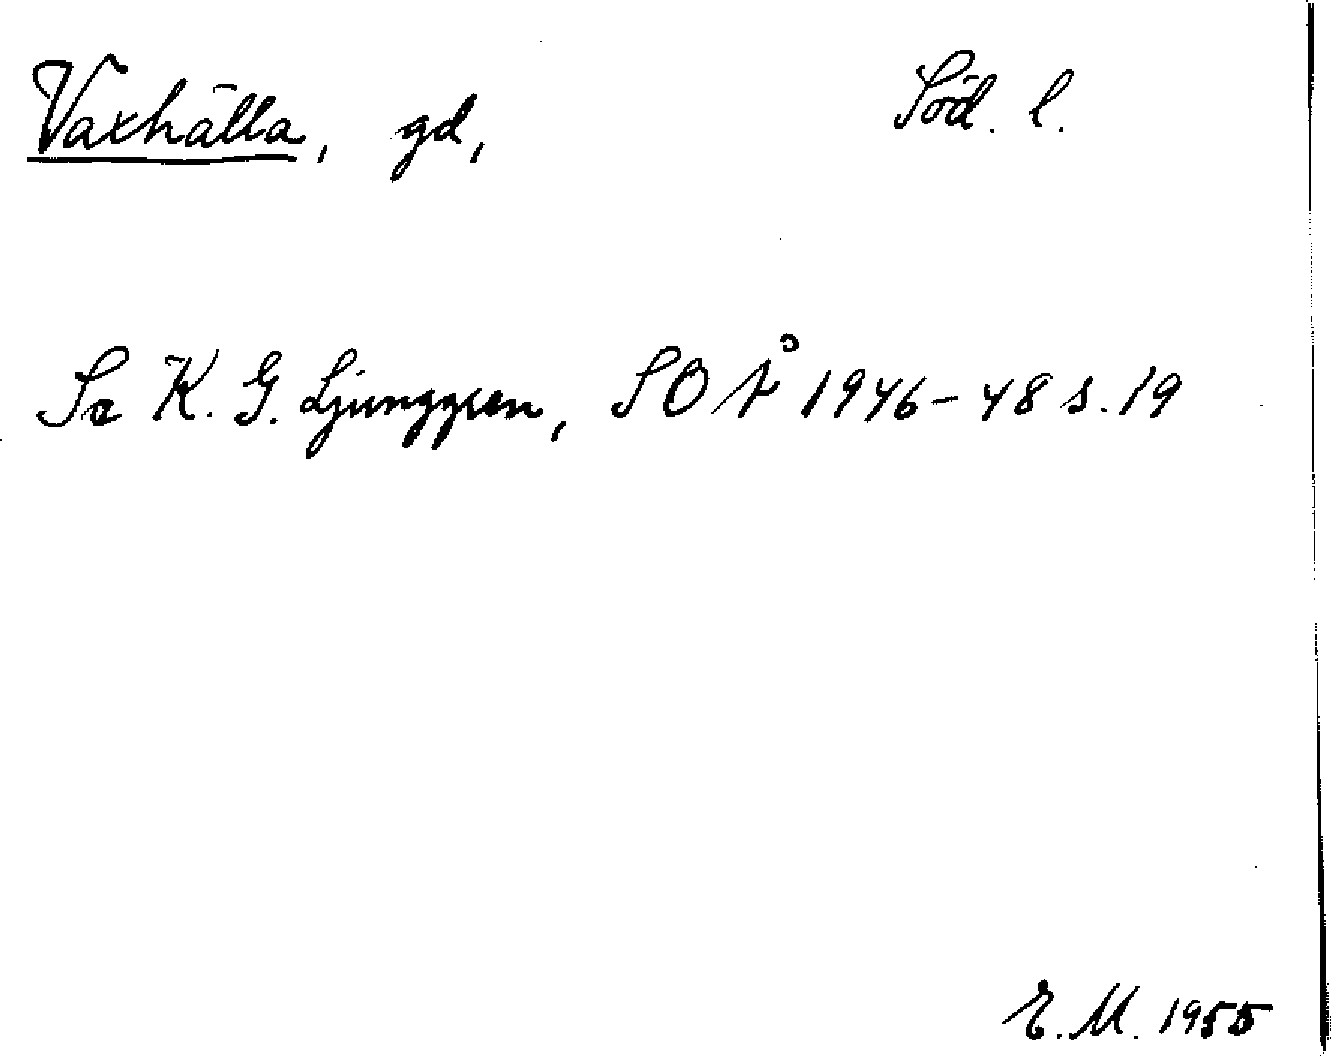 Vaxhälla, gd, Söd. l.
Se K. G. Ljunggren, SOÅ 1946-48 s. 19
E. M. 1955